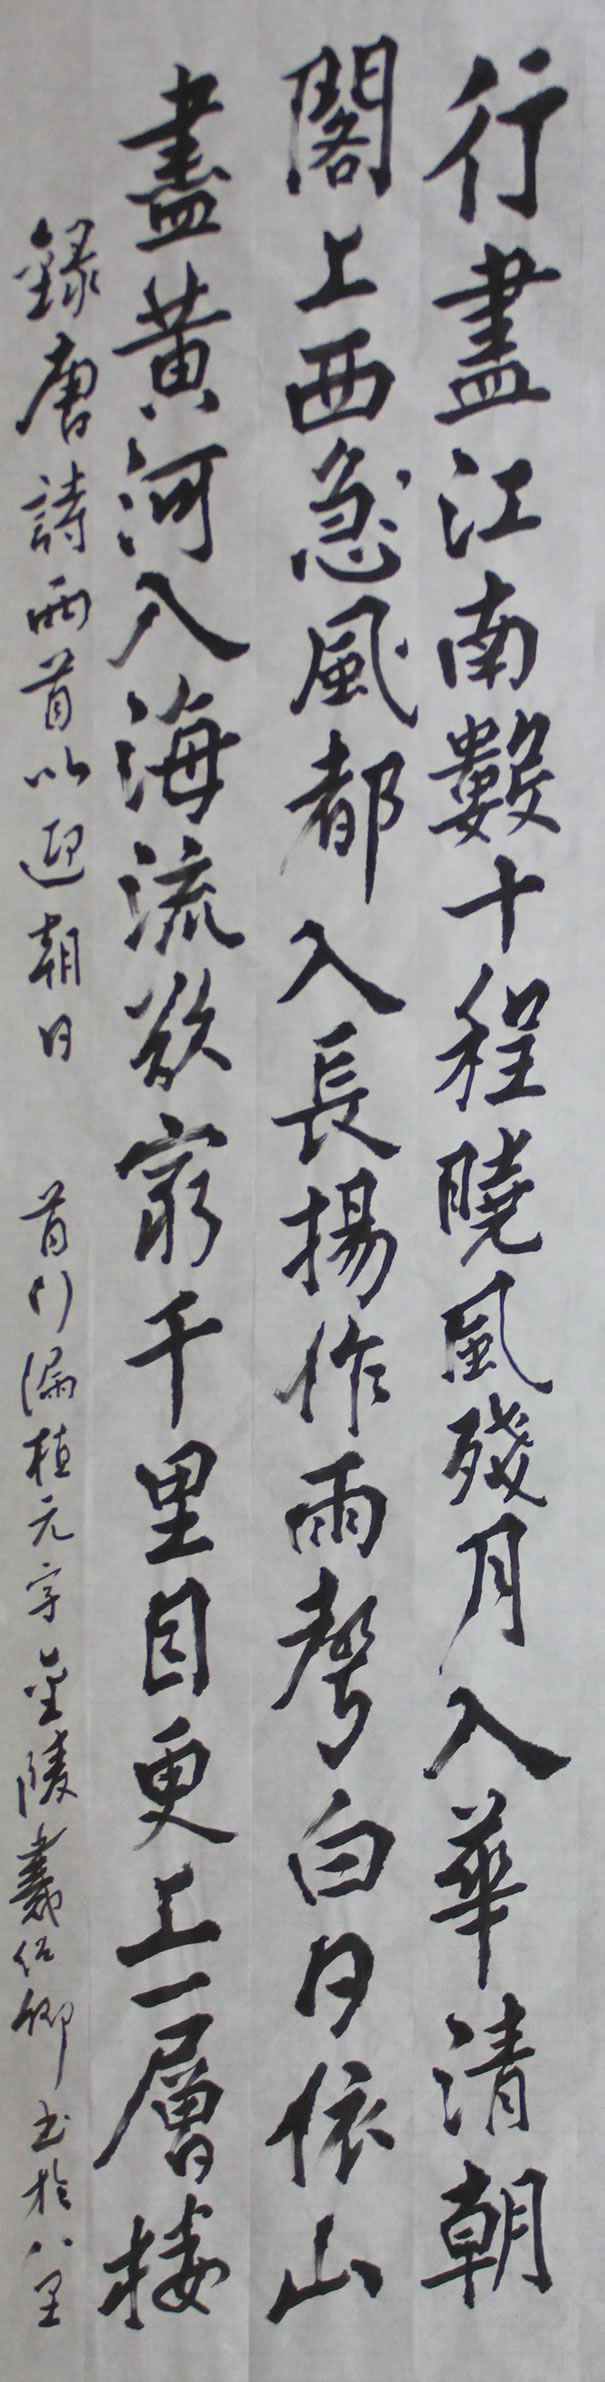 行盡江南數十程曉風殘月入華清朝
閣上西急風都入長揚作雨聲白日依山
盡黃河入海流欲窮千里目更上一層樓
錄唐詩兩首以迎朝日 首行漏植元字金陵戴紹卿書於八里